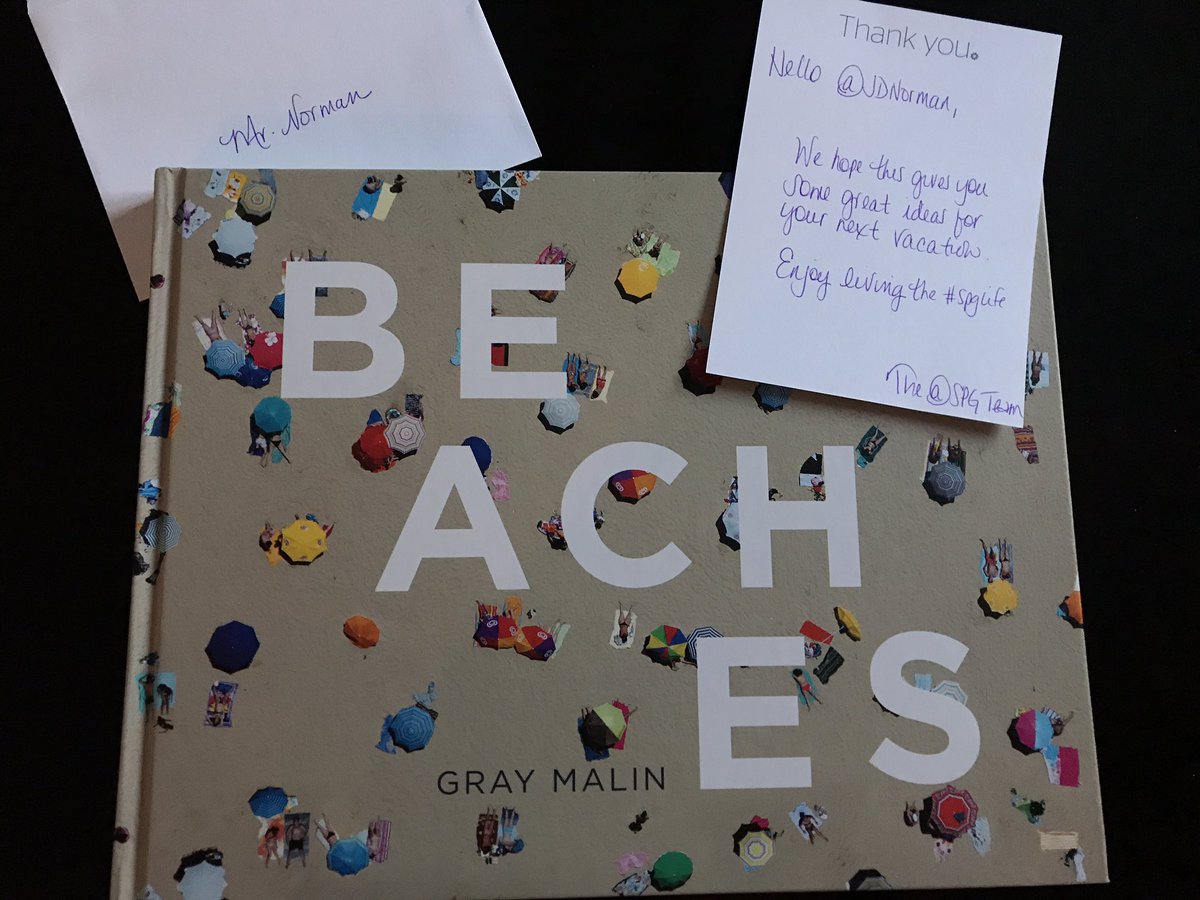 Mr. Norman
Thank you.
Hello @JDNorman,
We hope this gives you
some great ideas for
your next vacation.
Enjoy living the #spglife
The @SPG Team
BE
ACH
ES
GRAY MALIN